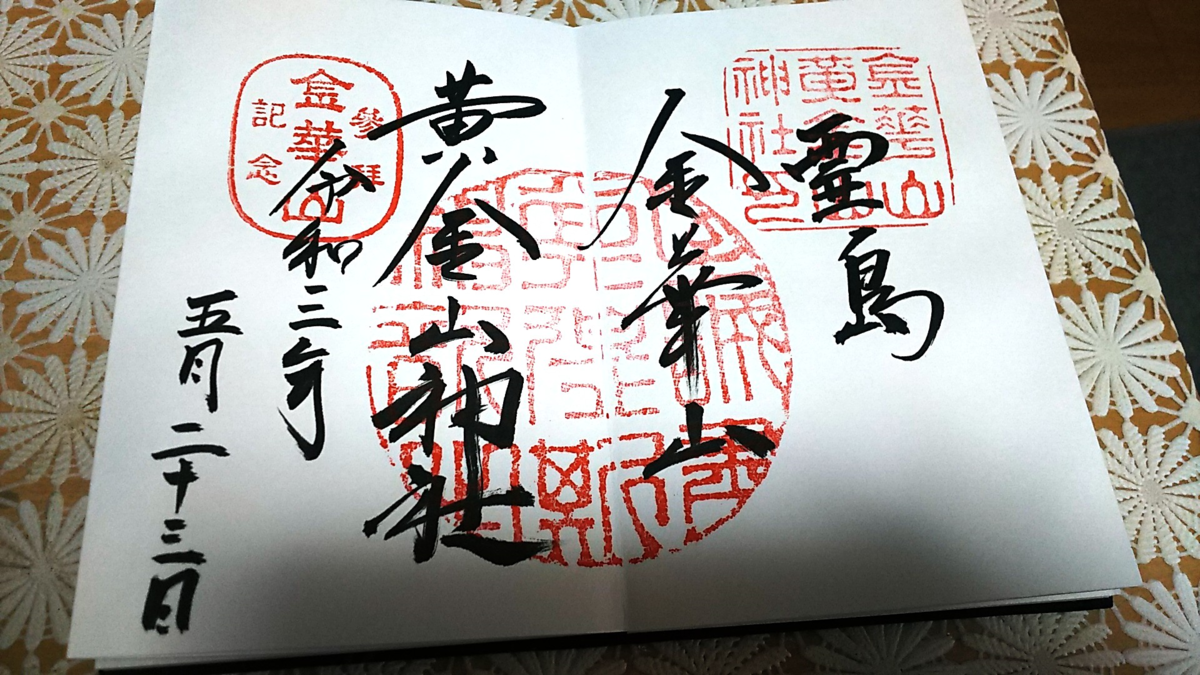 霊島
金華山
黄金山神社
令和三年
五月二十三日
金華山
黄金山
神社印
参拜
金華山
記念